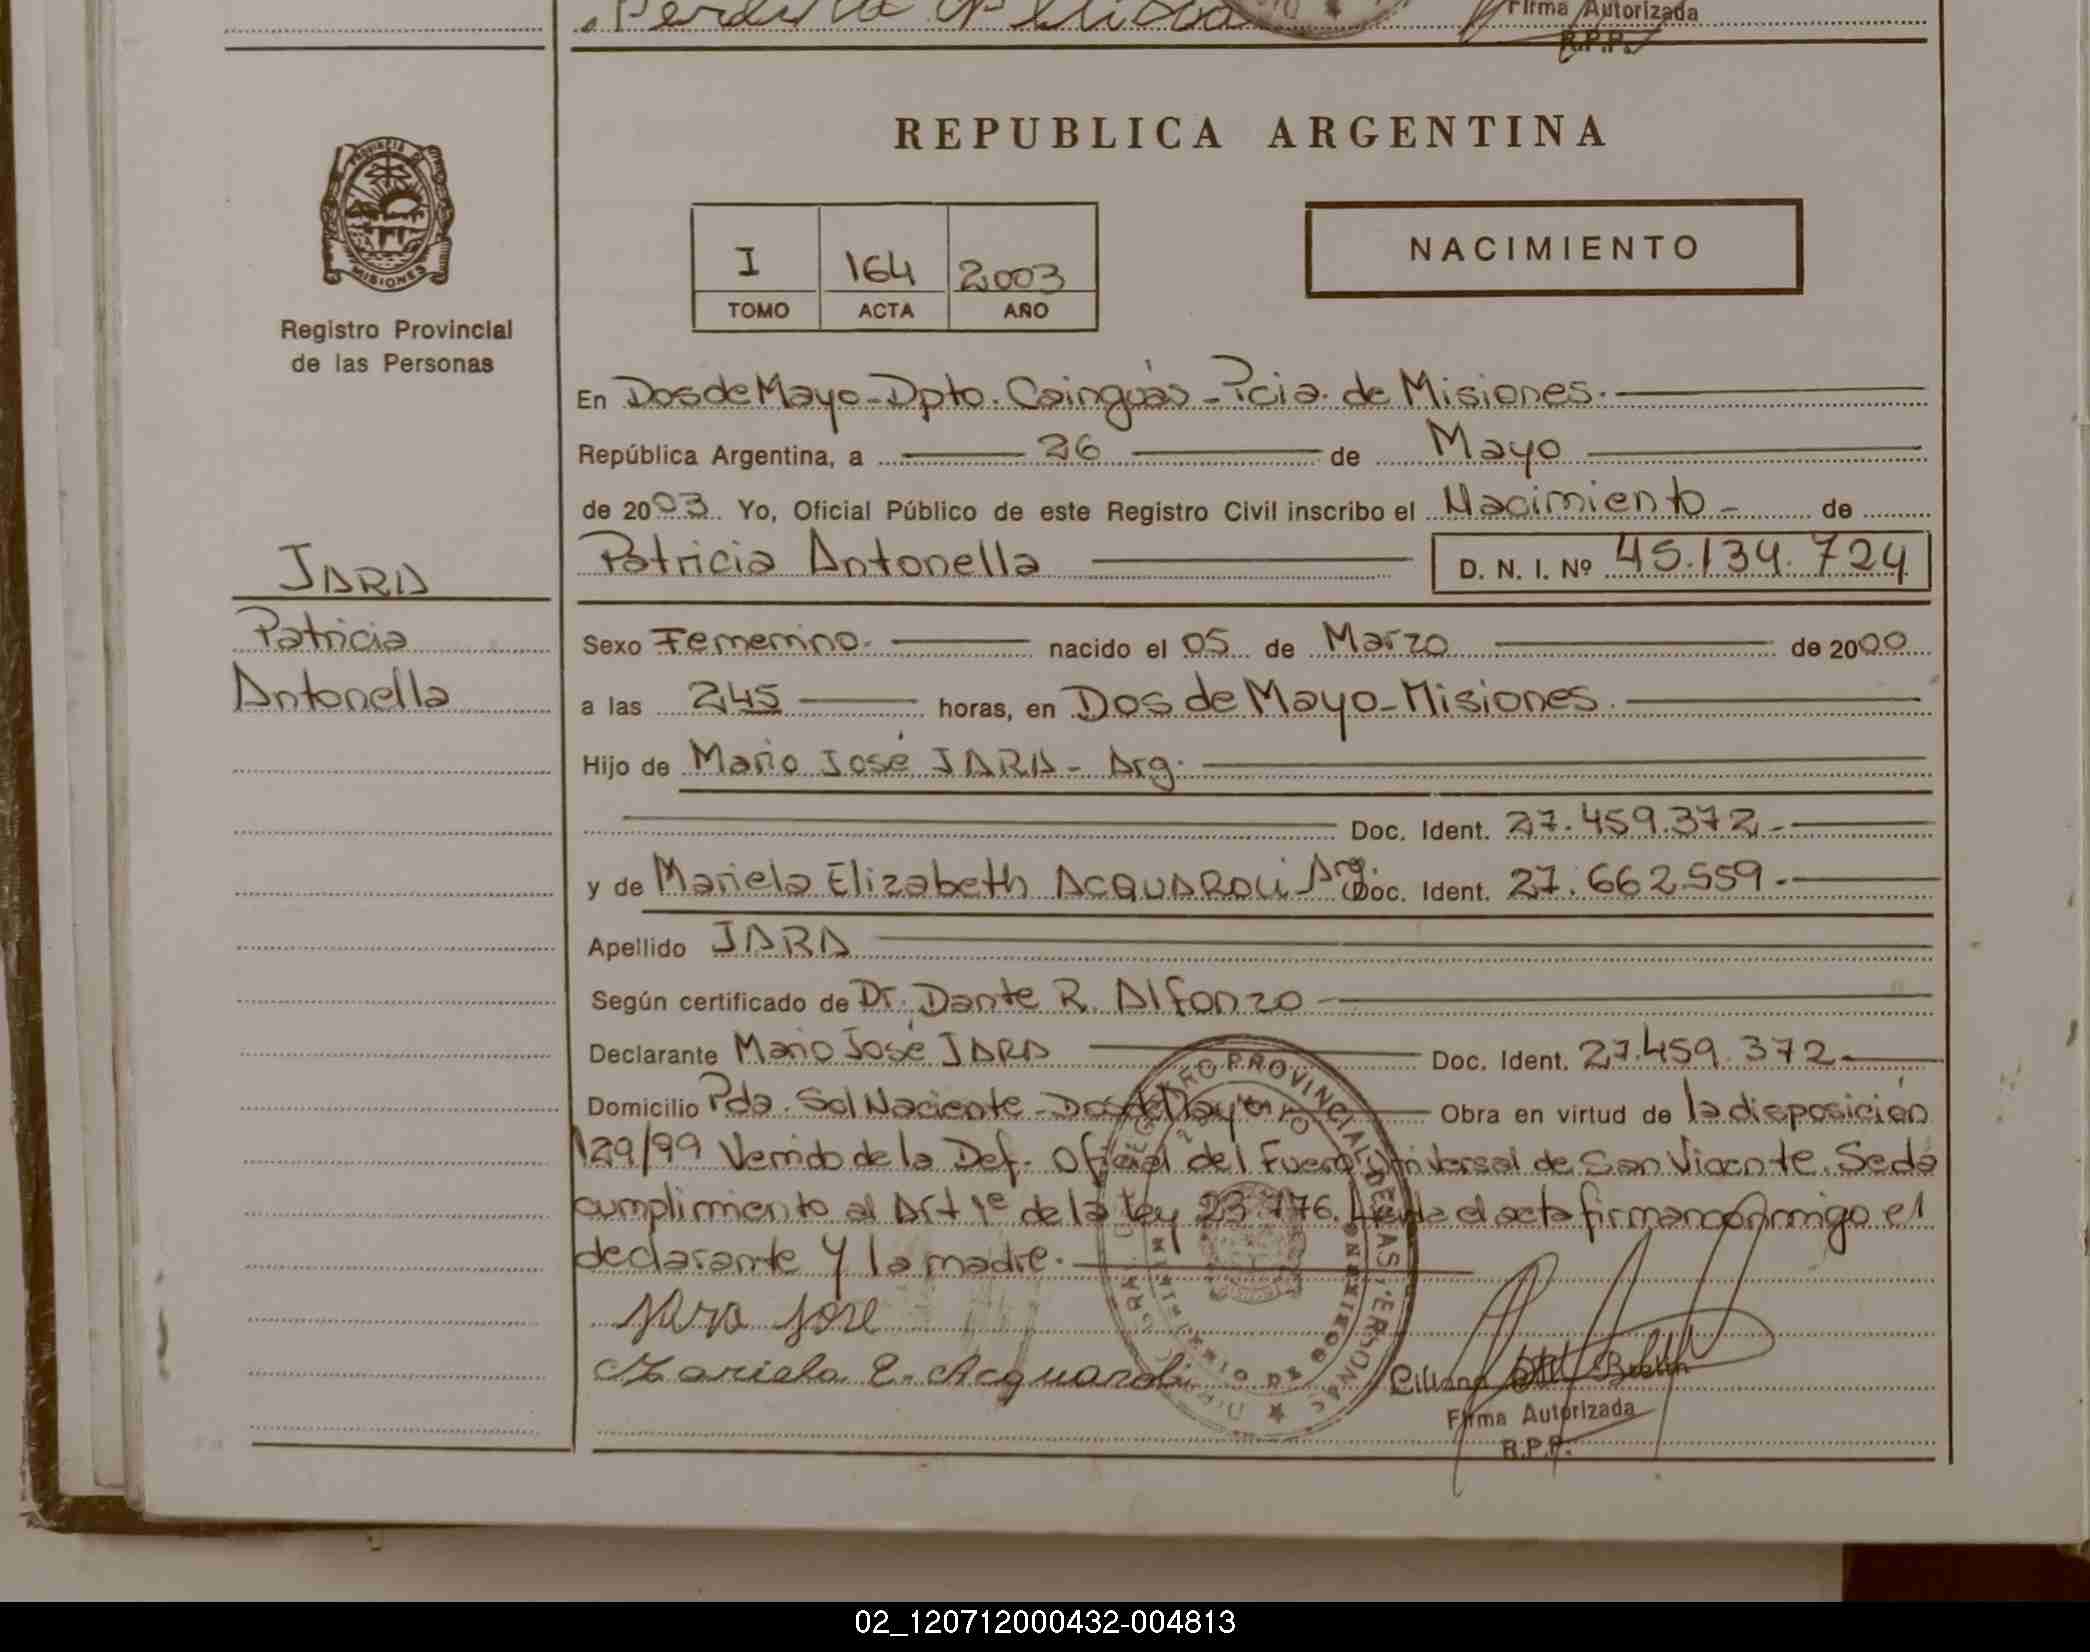 Perdita
Firma Autorizada
R.P.P.
REPUBLICA ARGENTINA
PROVINCIA D MISIONES
Registro Provincial
de las Personas
I 164 2003
TOMO ACTA AÑO
NACIMIENTO
En Dos de Mayo - Dpto. Cainguás - Pcia. de Misiones.
República Argentina, a 26 de Mayo
de 2003 Yo, Oficial Público de este Registro Civil inscribo el Nacimiento - de
JARA
Patricia Antonella D. N. I. Nº 45.134.724
Patricia
Antonella
Sexo Femenino. nacido el 05 de Marzo de 2000
a las 2,45 horas, en Dos de Mayo - Misiones.
Hijo de Mario José JARA - Arg.
Doc. Ident. 27.459.372.-
y de Mariela Elizabeth ACQUAROLI Arg. Doc. Ident. 27.662.559.-
Apellido JARA
Según certificado de Dr. Dante R. Alfonzo
Declarante Mario José JARA Doc. Ident. 27.459.372
Domicilio Pda. Sol Naciente - Dos de Mayo Obra en virtud de la disposición
129/99 Venido de la Def. Oficial del Fuero Universal de San Vicente. Se dá
cumplimiento al Art 1º de la Ley 23.776. Leída el acta firman conmigo el
declarante y la madre.
Jara Jose
Mariela E. Acquaroli
REGISTRO PROVINCIAL DE LAS PERSONAS
Firma Autorizada
R.P.P.
02_120712000432-004813